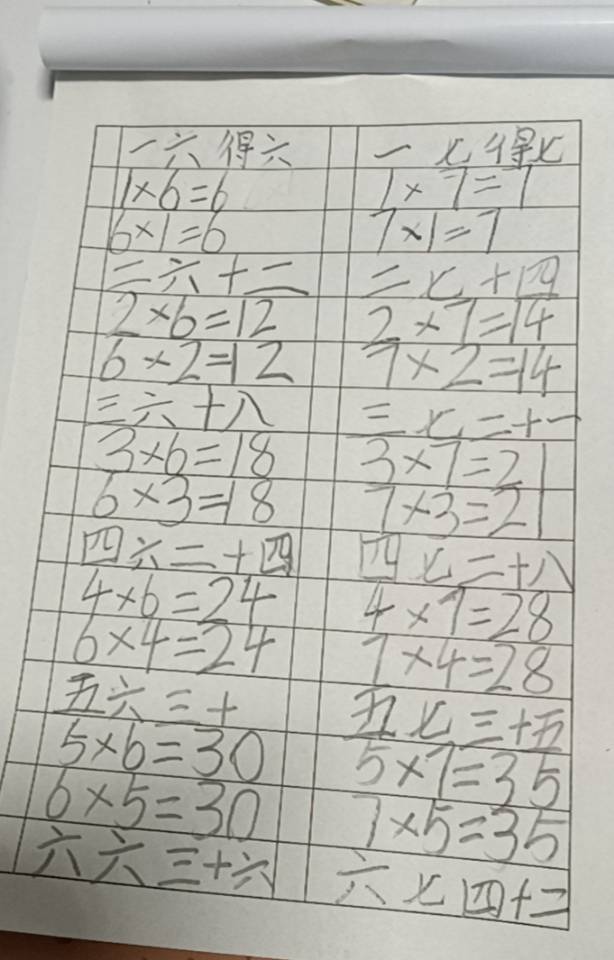 一六得六
1×6=6
6×1=6
二六十二
2×6=12
6×2=12
三六十八
3×6=18
6×3=18
四六二十四
4×6=24
6×4=24
五六三十
5×6=30
6×5=30
六六三十六
一七得七
1×7=7
7×1=7
二七十四
2×7=14
7×2=14
三七二十一
3×7=21
7×3=21
四七二十八
4×7=28
7×4=28
五七三十五
5×7=35
7×5=35
六七四十二